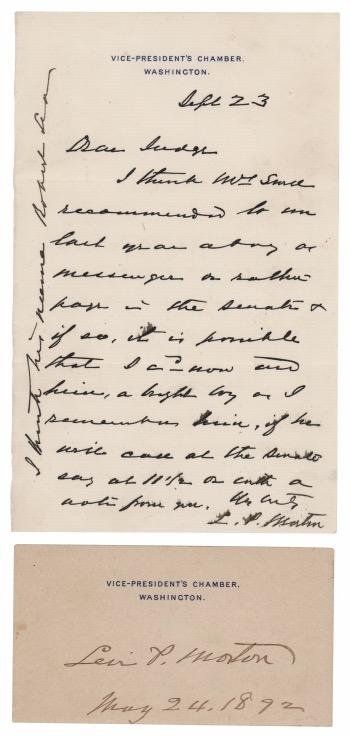 VICE-PRESIDENT'S CHAMBER.
WASHINGTON.
Sept 23
Dear Judge
I think Mrs
recommended to me
last year a boy as
messenger or rather
page in the Senate &
if so, it is possible
that I can now aid
him, a bright boy as I
remember him, if he
will call at the Senate
say at 11 1/2 or with a
note from you.
L. P. Morton
I think his name Robert
VICE-PRESIDENT'S CHAMBER.
WASHINGTON.
Levi P. Morton
May 24. 1892